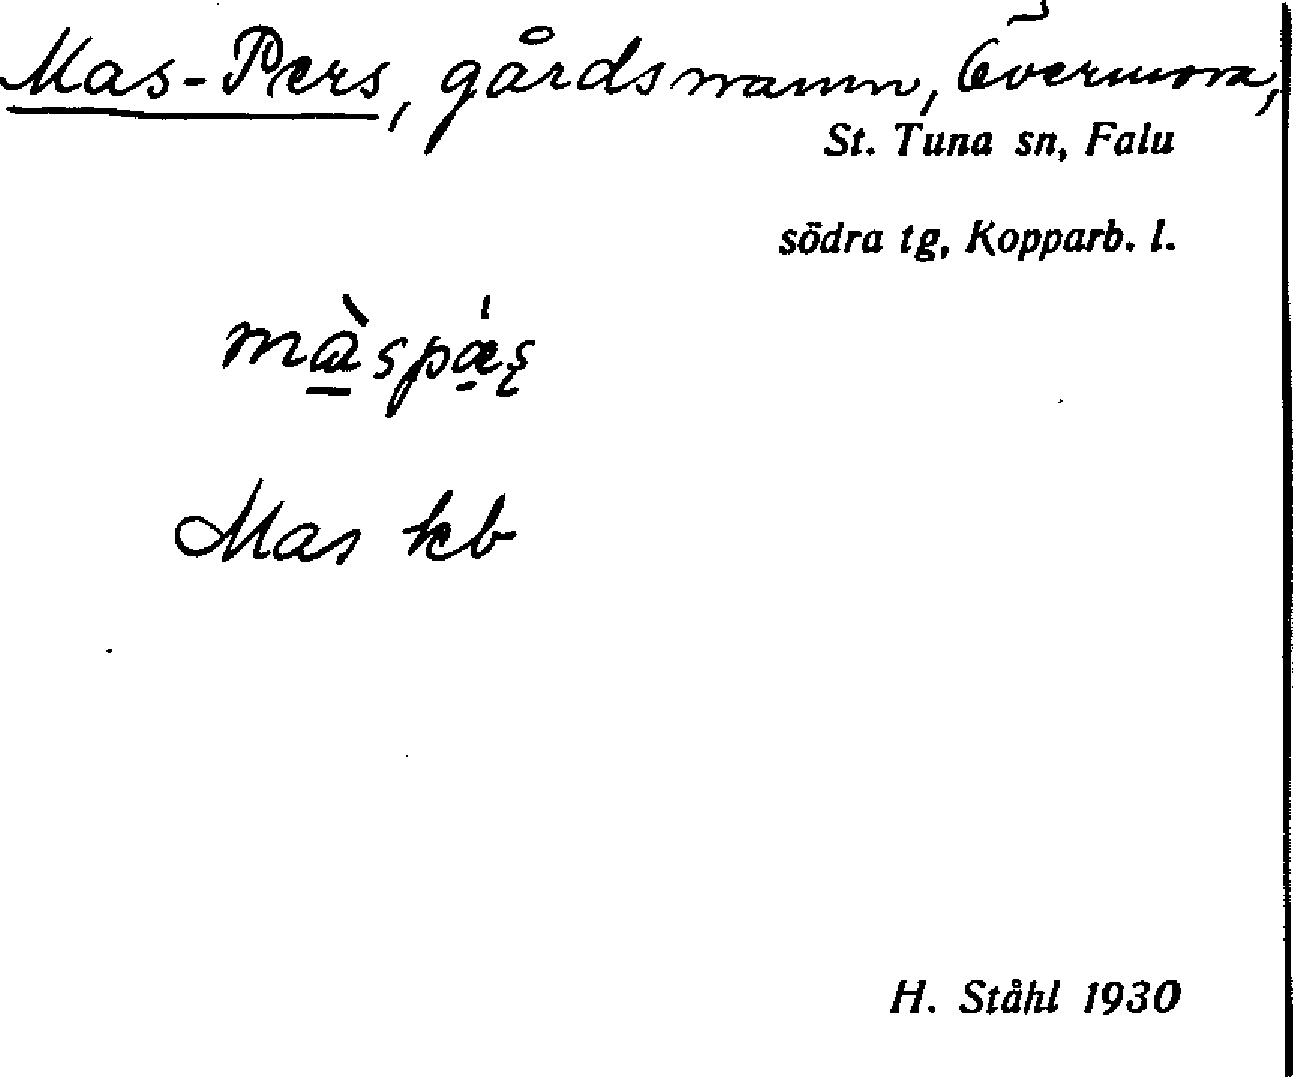 Mas-Pers, gårdsnamn, Övermora,
St. Tuna sn, Falu
södra tg, Kopparb. l.
Mas kb
H. Ståhl 1930